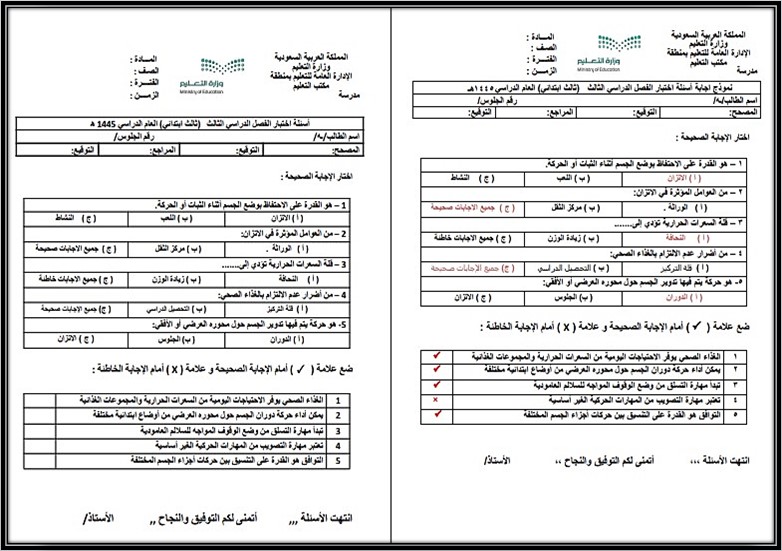 المملكة العربية السعودية
وزارة التعليم
الإدارة العامة للتعليم بمنطقة
مكتب التعليم
مدرسة
وزارة التعليم
Ministry of Education
المادة :
الصف :
الفترة :
الزمن :
نموذج اجابة أسئلة اختبار الفصل الدراسي الثالث (ثالث ابتدائي) العام الدراسي ١٤٤٥هـ
اسم الطالب/ـة/ رقم الجلوس/
المصحح: التوقيع: المراجع: التوقيع:
اختار الإجابة الصحيحة :
١ – هو القدرة على الاحتفاظ بوضع الجسم أثناء الثبات أو الحركة.
( أ ) الاتزان ( ب ) اللعب ( ج ) النشاط
٢ – من العوامل المؤثرة في الاتزان:
( أ ) الوراثة . ( ب ) مركز الثقل ( ج ) جميع الاجابات صحيحة
٣ – قلة السعرات الحرارية تؤدي إلى.......
( أ ) النحافة ( ب ) زيادة الوزن ( ج ) جميع الاجابات خاطئة
٤ – من أضرار عدم الالتزام بالغذاء الصحي:
( أ ) قلة التركيز ( ب ) التحصيل الدراسي ( ج ) جميع الإجابات صحيحة
٥- هو حركة يتم فيها تدوير الجسم حول محوره العرضي أو الأفقي:
( أ ) الدوران ( ب ) الجلوس ( ج ) الاتزان
ضع علامة ( ✓ ) أمام الإجابة الصحيحة و علامة ( X ) أمام الإجابة الخاطئة :
١ الغذاء الصحي يوفر الاحتياجات اليومية من السعرات الحرارية والمجموعات الغذائية ✓
٢ يمكن أداء حركة دوران الجسم حول محوره العرضي من أوضاع ابتدائية مختلفة ✓
٣ تبدأ مهارة التسلق من وضع الوقوف المواجه للسلالم العامودية ✓
٤ تعتبر مهارة التصويب من المهارات الحركية الغير أساسية ×
٥ التوافق هو القدرة على التنسيق بين حركات أجزاء الجسم المختلفة ✓
انتهت الأسئلة ,,, أتمنى لكم التوفيق والنجاح ,, الأستاذ/
المملكة العربية السعودية
وزارة التعليم
الإدارة العامة للتعليم بمنطقة
مكتب التعليم
مدرسة
وزارة التعليم
Ministry of Education
المادة :
الصف :
الفترة :
الزمن :
أسئلة اختبار الفصل الدراسي الثالث (ثالث ابتدائي) العام الدراسي 1445 هـ
اسم الطالب/ـة/ رقم الجلوس/
المصحح: التوقيع: المراجع: التوقيع:
اختار الإجابة الصحيحة :
1 – هو القدرة على الاحتفاظ بوضع الجسم أثناء الثبات أو الحركة.
( أ ) الاتزان ( ب ) اللعب ( ج ) النشاط
2 – من العوامل المؤثرة في الاتزان:
( أ ) الوراثة . ( ب ) مركز الثقل ( ج ) جميع الاجابات صحيحة
3 – قلة السعرات الحرارية تؤدي إلى.......
( أ ) النحافة ( ب ) زيادة الوزن ( ج ) جميع الاجابات خاطئة
4 – من أضرار عدم الالتزام بالغذاء الصحي:
( أ ) قلة التركيز ( ب ) التحصيل الدراسي ( ج ) جميع الإجابات صحيحة
5- هو حركة يتم فيها تدوير الجسم حول محوره العرضي أو الأفقي:
( أ ) الدوران ( ب ) الجلوس ( ج ) الاتزان
ضع علامة ( ✓ ) أمام الإجابة الصحيحة و علامة ( X ) أمام الإجابة الخاطئة :
1 الغذاء الصحي يوفر الاحتياجات اليومية من السعرات الحرارية والمجموعات الغذائية
2 يمكن أداء حركة دوران الجسم حول محوره العرضي من أوضاع ابتدائية مختلفة
3 تبدأ مهارة التسلق من وضع الوقوف المواجه للسلالم العامودية
4 تعتبر مهارة التصويب من المهارات الحركية الغير أساسية
5 التوافق هو القدرة على التنسيق بين حركات أجزاء الجسم المختلفة
انتهت الأسئلة ,,, أتمنى لكم التوفيق والنجاح ,, الأستاذ/